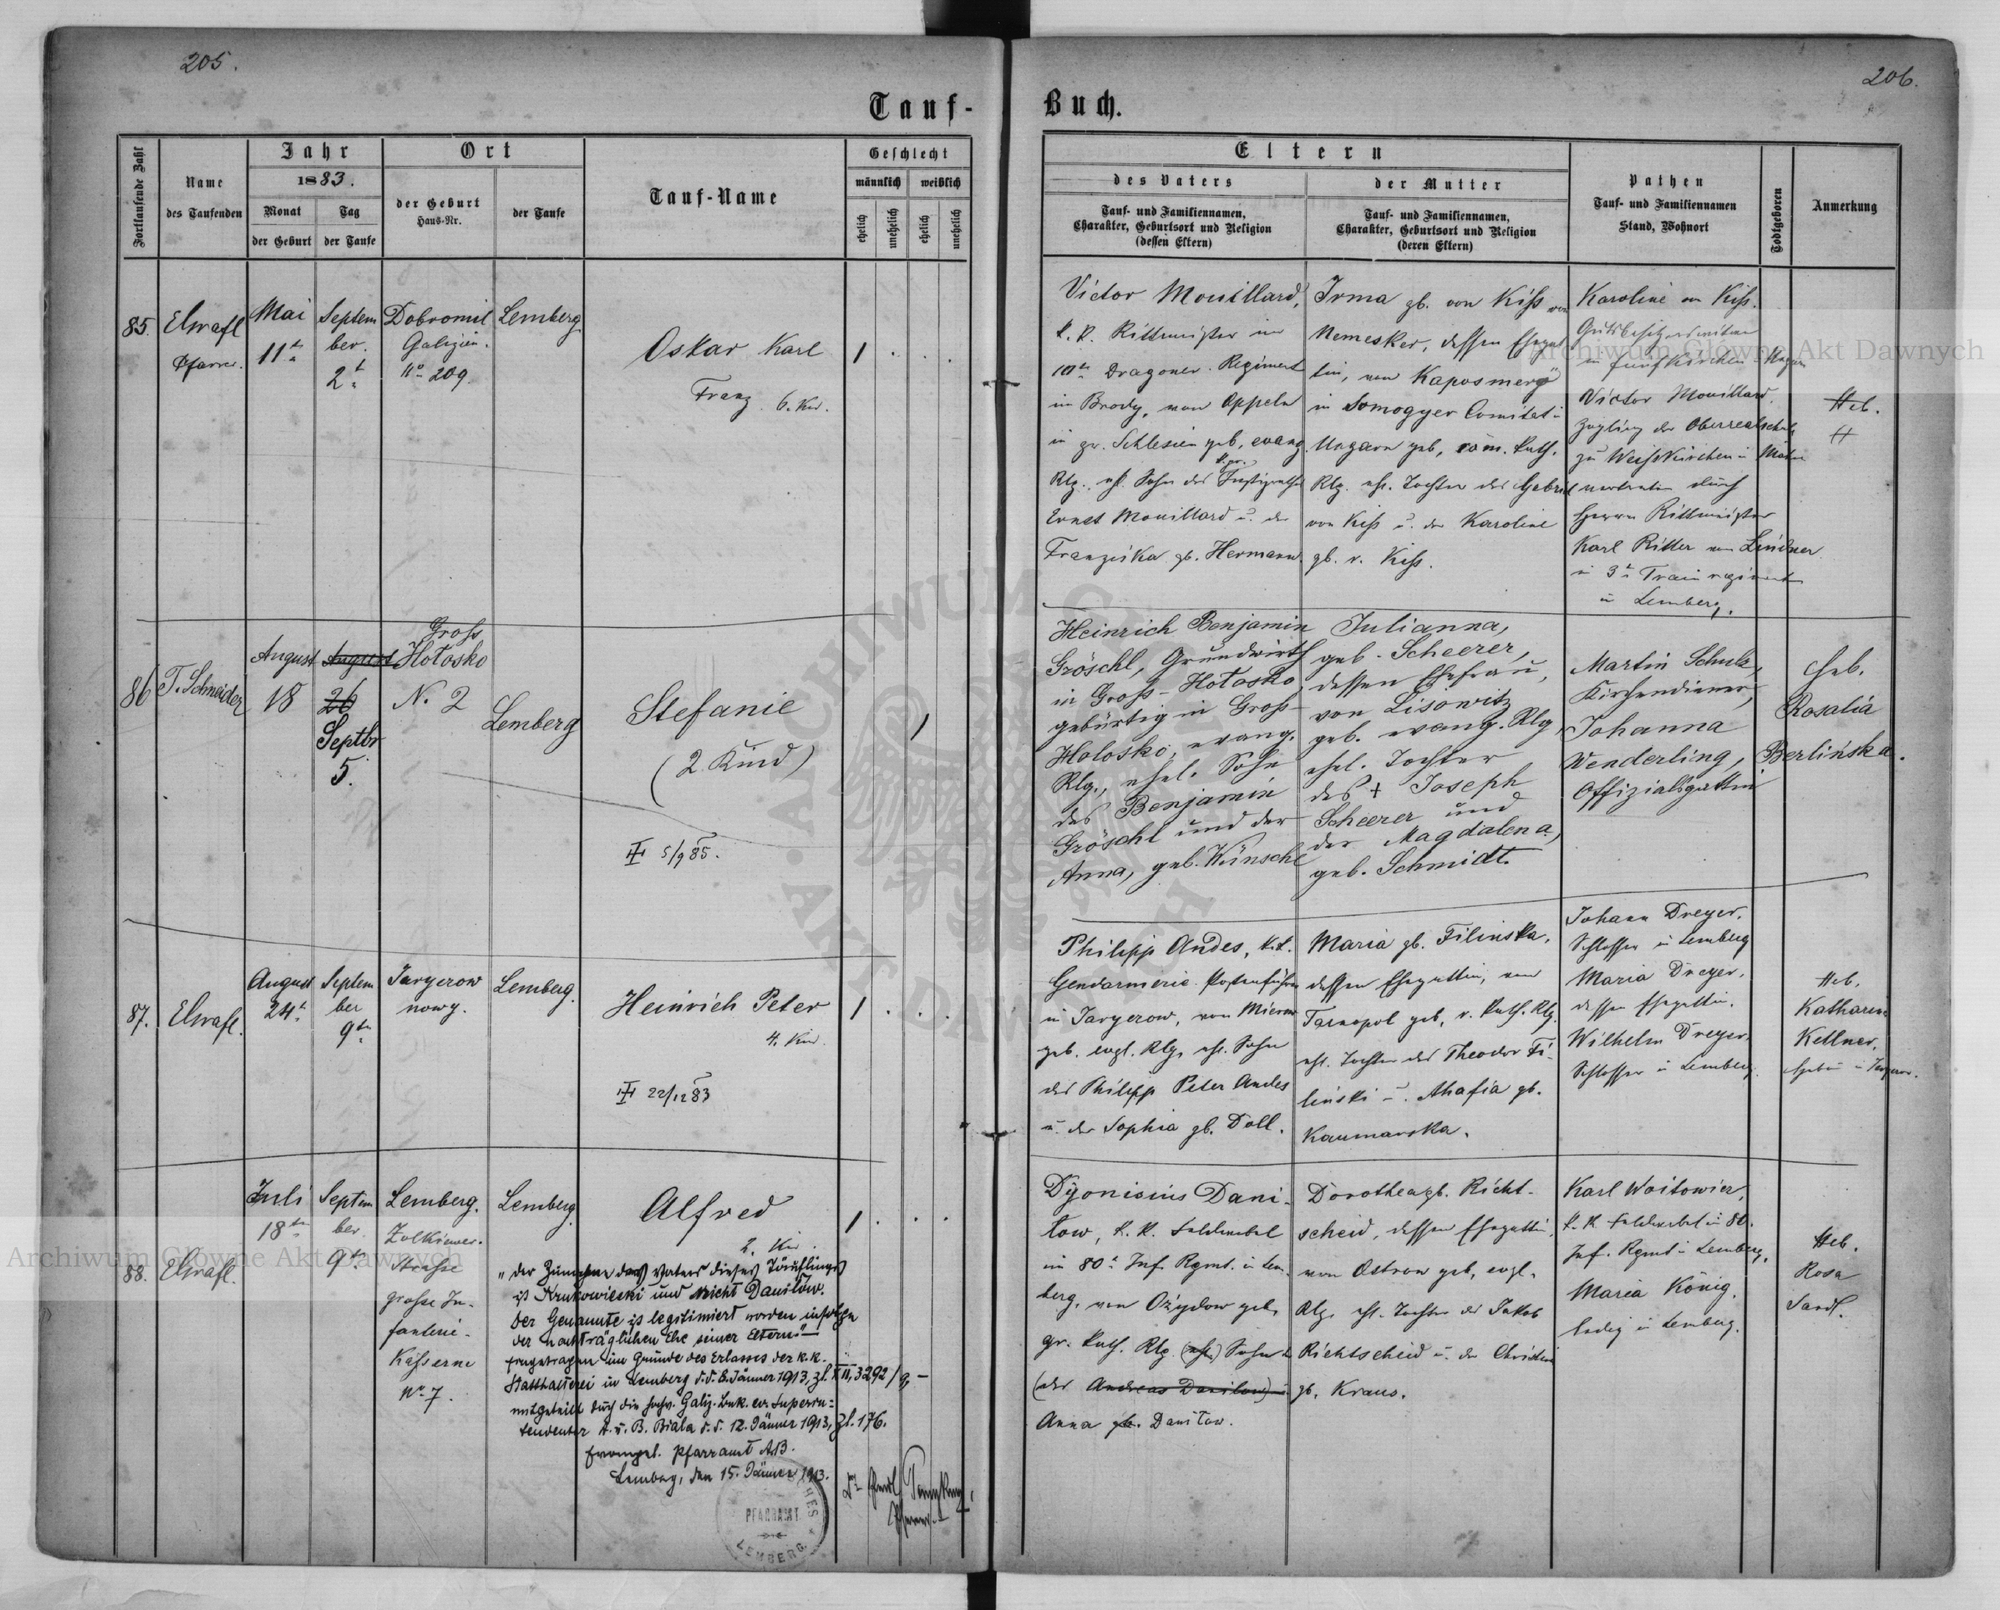 205.
206.
Tauf-
Buch.
Fortlaufende Zahl
Name
des Taufenden
Jahr
1883.
Monat
der Geburt
Tag
der Taufe
Ort
der Geburt
Haus-Nr.
der Taufe
Tauf-Name
Geschlecht
männlich
weiblich
ehelich
unehelich
ehelich
unehelich
Eltern
des Vaters
Tauf- und Familiennamen,
Charakter, Geburtsort und Religion
(dessen Eltern)
der Mutter
Tauf- und Familiennamen,
Charakter, Geburtsort und Religion
(deren Eltern)
Pathen
Tauf- und Familiennamen
Stand, Wohnort
Todtgeboren
Anmerkung
85.
Pfarrer.
Mai
11te
Septem
ber.
2t
Dobromil
Galizien.
No 209.
Lemberg.
Oskar Karl
Franz 6. Kind.
Victor Mouillard,
k. k. Rittmeister im
10ten Dragoner-Regiment
in Brody, von Oppeln
in pr. Schlesien geb, evang.
Rlg., ehl. Sohn des Justizrathes
Ernst Mouillard u. der
Franziska gb. Hermann.
Irma gb. von Kiss von
Nemesker, dessen Ehegat
tin, von Kaposmerö
in Somogyer Comitat in
Ungarn geb, röm. kath.
Rlg. ehl. Tochter des Gabriel
von Kiss u. der Karoline
gb. v. Kiss.
Karoline von Kiss.
in Fünfkirchen Ungarn
Victor Mouillard.
Zögling der Oberrealschule
zu Weisskirchen in Mähren
vertreten durch
Herrn Rittmeister
Karl Ritter von Lindner
in 3ten Trainregiment
in Lemberg.
Heb.
86
T. Schneider
August
18
August
26
Septbr
5.
Gross
Hołosko
N. 2
Lemberg
Stefanie
(2. Kind)
5/9 85.
Heinrich Benjamin
Gröschl, Grundwirth
in Gross-Hołosko,
gebürtig in Gross-
Holosko, evang.
Rlg., ehel. Sohn
des Benjamin
Gröschl und der
Anna, geb. Wünschl
Julianna,
geb. Scheerer,
dessen Ehefrau,
von Lisowitz
geb. evang. Rlg,
ehel. Tochter
des + Joseph
Scheerer und
der Magdalena,
geb. Schmidt.
Martin Schulz,
Kirchendiener,
Johanna
Wenderling,
Offizialsgattin
Heb.
Rosalia
Berlińska.
87.
August
24t
Septem
ber
9te
Jaryczow
nowy.
Lemberg.
Heinrich Peter
4. Kind.
22/12 83
Philipp Andes, k.k.
Gendarmerie-Postenführer
in Jaryczow, von Mierow
geb. evgl. Rlg, ehl. Sohn
des Philipp Peter Andes
u. der Sophia gb. Doll.
Maria gb. Filinska,
dessen Ehegattin, von
Tarnopol geb, r. kath. Rlg.
ehl. Tochter des Theodor Fi-
linski u. Ahafia gb.
Kaumarska.
Johann Dreyer.
Schlosser in Lemberg
Maria Dreyer,
dessen Ehegattin.
Wilhelm Dreyer,
Schlosser in Lemberg.
Heb.
Katharina
Kellner,
88.
Juli
18te
Septem
ber.
9te
Lemberg.
Zolkiewer-
Strasse
grosse In-
fanterie-
Kaserne
No 7.
Lemberg.
Alfred
2. Kind.
„Der Zuname des Vaters dieses Täuflings
ist Krukowiecki und nicht Daniłów.
Der Genannte ist legitimiert worden infolge
der nachträglichen Ehe seiner Eltern."
Eingetragen im Grunde des Erlasses der k.k.
Statthalterei in Lemberg d.d. 8. Jänner 1913, Zl. XII, 3292/9, –
mitgeteilt durch die hochw. Galiz.-Buk. ev. Superin-
tendentur A. u. B. Biala d.d. 12. Jänner 1913, Zl. 176.
Evangel. Pfarramt A.B.
Lemberg, den 15. Jänner 1913.
PFARRAMT
LEMBERG
Dyonisius Dani-
low, k. k. Feldwebel
im 80t Inf. Rgmt. in Lem-
berg, von Ożydow geb,
gr. kath. Rlg. (ehl.) Sohn d.
(des Andreas Danilow) u
Anna gb. Danilow.
Dorothea gb. Richt-
scheid, dessen Ehegattin,
von Ostrow geb, evgl.
Rlg. ehl. Tochter des Jakob
Richtscheid u. der Christine
gb. Kraus.
Karl Woitowicz,
k. k. Feldwebel im 80.
Inf. Rgmt in Lemberg,
Maria König,
ledig in Lemberg.
Heb.
Rosa
Sandl.
Archiwum Główne Akt Dawnych
Archiwum Główne Akt Dawnych